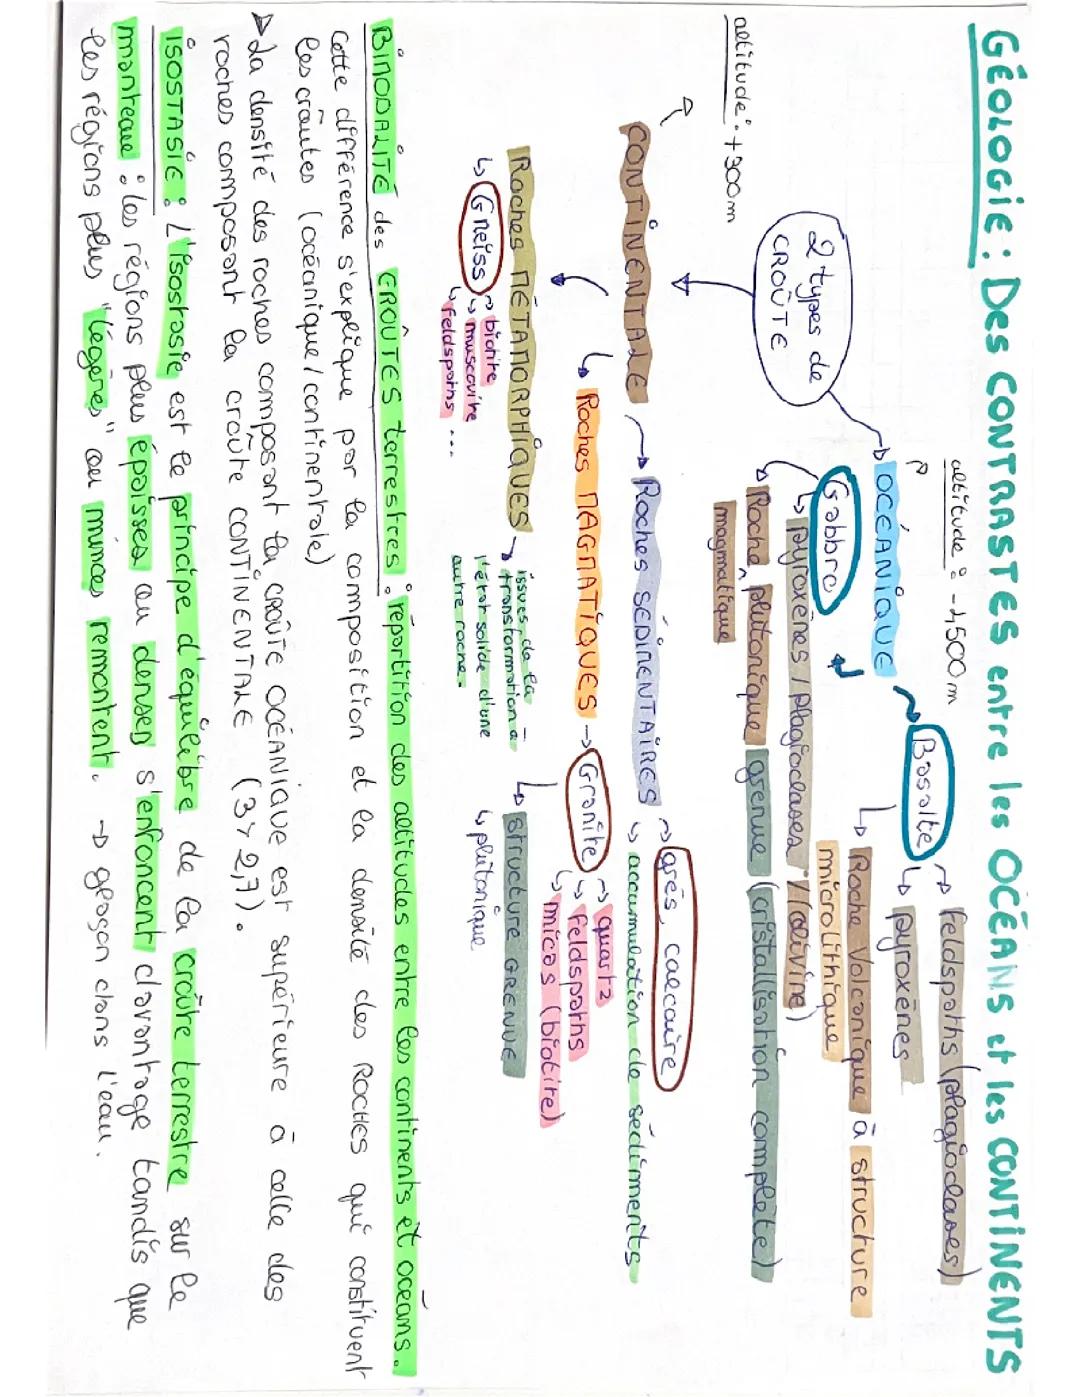 GÉOLOGIE : Des CONTRASTES entre les OCÉANS et les CONTINENTS
altitude : +300m
2 types de
CROÛTE
altitude : -4500m
OCÉANIQUE
Basalte
feldspaths (plagioclases)
pyroxènes
Roche Volcanique à structure
microlithique
Gabbro
pyroxènes / plagioclases / (olivine)
Roche plutonique grenue (cristallisation complète)
magmatique
CONTINENTALE
Roches SÉDIMENTAIRES
grés, calcaire
accumulation de sédiments
Roches MAGMATIQUES → Granite
quartz
feldspaths
micas (biotite)
structure GRENUE
plutonique
Roches MÉTAMORPHIQUES
issues de la
transformation à
l'état solide d'une
autre roche.
Gneiss
biotite
muscovite
feldspaths ...
BIMODALITÉ des CROÛTES terrestres : répartition des altitudes entre les continents et océans.
Cette différence s'explique par la composition et la densité des ROCHES qui constituent
les croûtes (océanique / continentale)
La densité des roches composant la CROÛTE OCÉANIQUE est supérieure à celle des
roches composant la croûte CONTINENTALE (3 > 2,7).
ISOSTASIE : L'isostasie est le principe d'équilibre de la croûte terrestre sur le
manteau : les régions plus épaisses ou denses s'enfoncent davantage tandis que
les régions plus "légères" ou minces remontent. → glaçon dans l'eau.